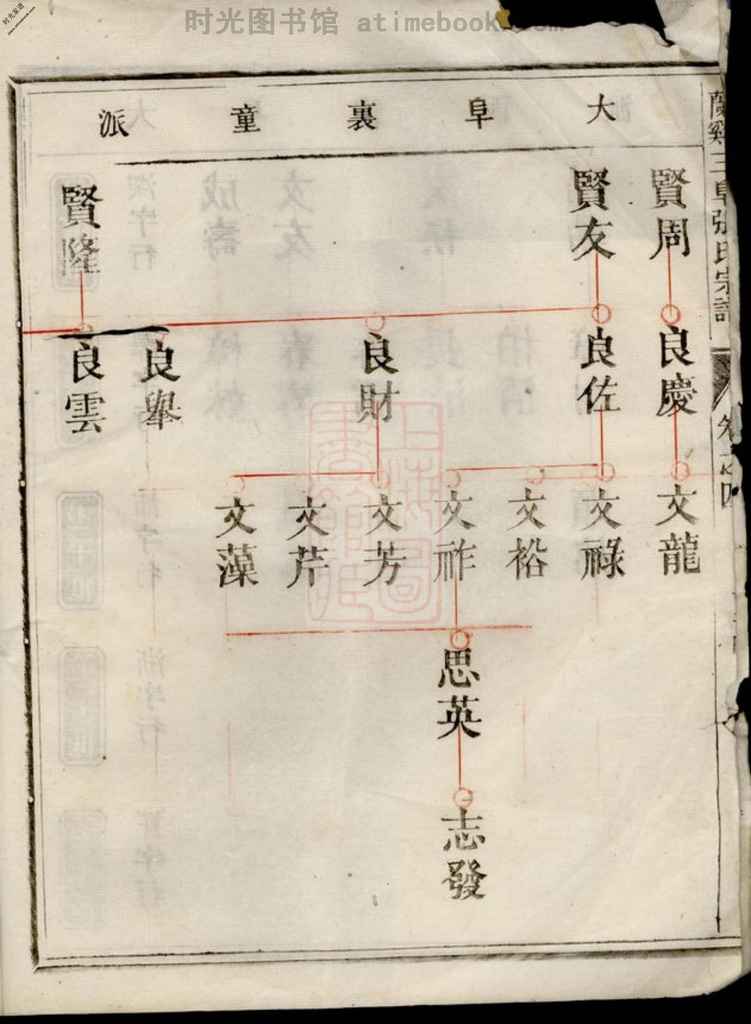 时光图书馆 atimebook.com
时光家谱
蘭谿三阜張氏宗譜
卷之四
大阜裏童派
賢周
賢友
賢隆
良慶
良佐
良財
良舉
良雲
文龍
文祿
文裕
文祚
文芳
文芹
文藻
思英
志發
上海圖書館藏